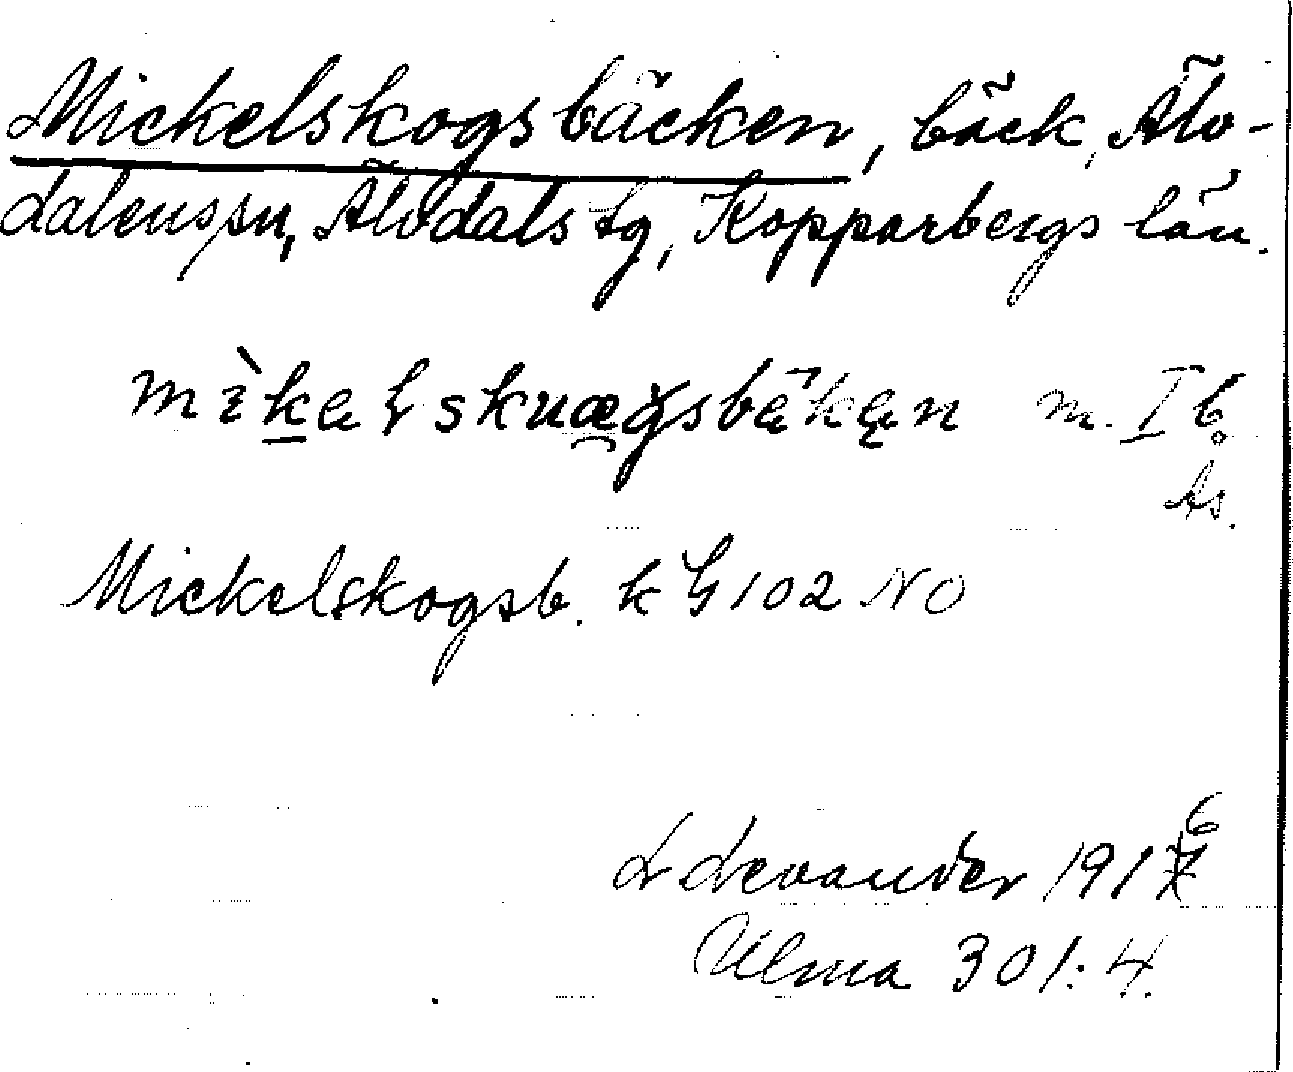 Mickelskogsbäcken, bäck, Älv-
dalens sn, Älvdals tg, Kopparbergs län.
m. I b
ts.
Mickelskogsb. k G 102 NO
6
L Levander 1917
Ulma 301:4.